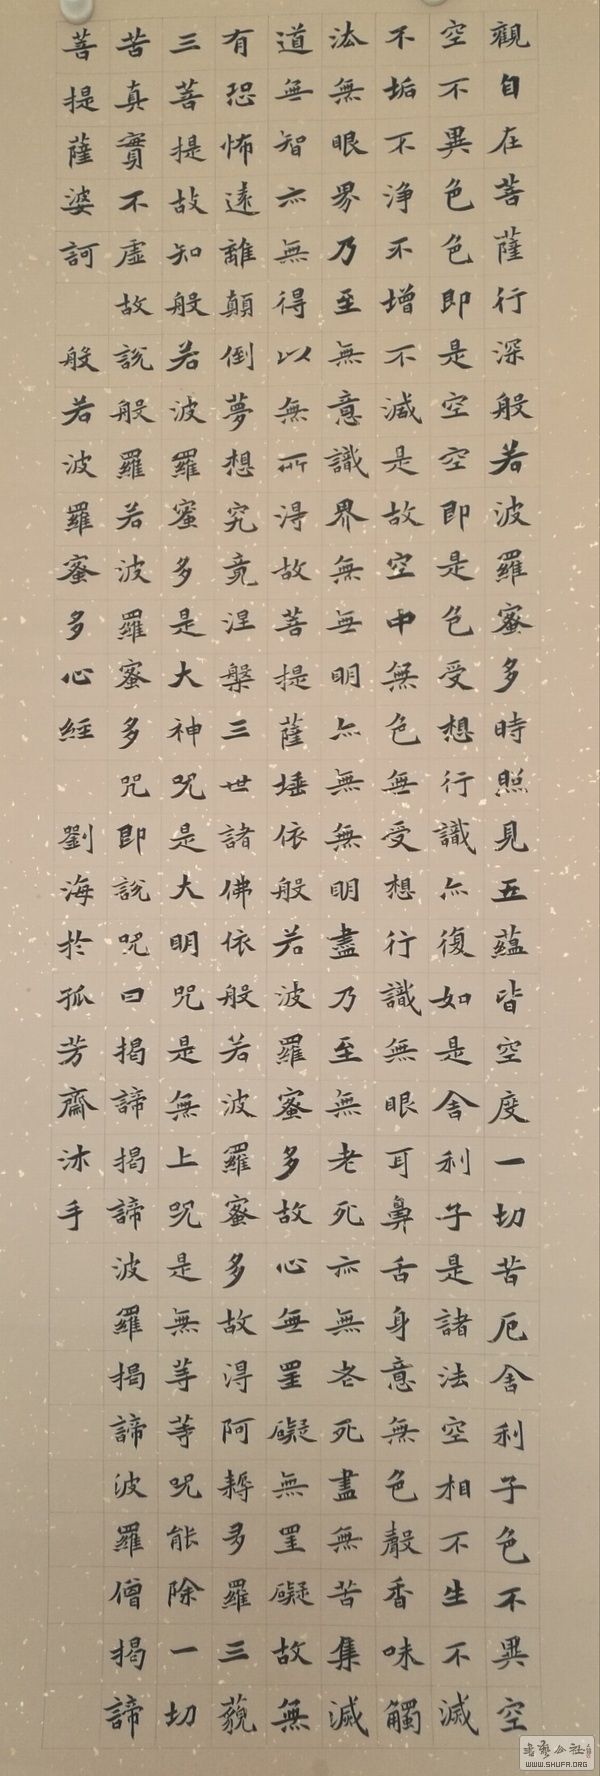 觀自在菩薩行深般若波羅蜜多時照見五蘊皆空度一切苦厄舍利子色不異空
空不異色色即是空空即是色受想行識亦復如是舍利子是諸法空相不生不滅
不垢不淨不增不減是故空中無色無受想行識無眼耳鼻舌身意無色聲香味觸
法無眼界乃至無意識界無無明亦無無明盡乃至無老死亦無老死盡無苦集滅
道無智亦無得以無所得故菩提薩埵依般若波羅蜜多故心無罣礙無罣礙故無
有恐怖遠離顛倒夢想究竟涅槃三世諸佛依般若波羅蜜多故得阿耨多羅三藐
三菩提故知般若波羅蜜多是大神咒是大明咒是無上咒是無等等咒能除一切
苦真實不虛故說般羅若波羅蜜多咒即說咒曰揭諦揭諦波羅揭諦波羅僧揭諦
菩提薩婆訶 般若波羅蜜多心經 劉海於孤芳齋沐手
WWW.SHUFA.ORG